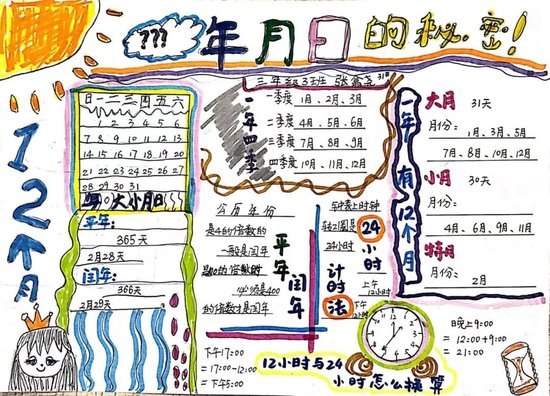 ???
年月日的秘密!
三年级3班
12个月
日一二三四五六
1 2 3 4 5 6
7 8 9 10 11 12 13
14 15 16 17 18 19 20
21 22 23 24 25 26 27
28 29 30 31
大小月日
平年:
365天
2月28天
闰年:
366天
2月29天
一年四季
一季度 1月、2月、3月
二季度 4月、5月、6月
三季度 7月、8月、9月
四季度 10月、11月、12月
公历年份
是4的倍数的
一般是闰年
的倍数的
必须是400
的倍数才是闰年
平年
闰年
钟表上时钟
转2圈是
24小时
24
小时
计时
法
上午
12小时
下午
12小时
一年有12个月
大月 31天
月份:
1月、3月、5月
7月、8月、10月、12月
小月 30天
月份:
4月、6月、9月、11月
特月
月份:
2月
下午17:00
=17:00-12:00
=下午5:00
12小时与24
小时怎么换算
12 1 2 3 4 5 6 7 8 9 10 11
晚上9:00
=12:00+9:00
=21:00